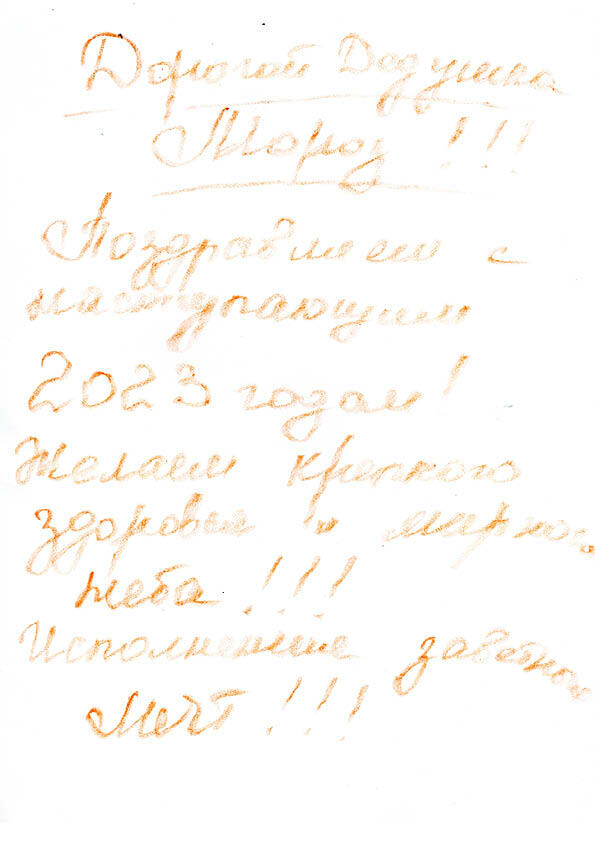 Дорогой Дедушка
Мороз !!!
Поздравляем с
наступающим
2023 годом!
Желаем крепкого
здоровья и мирного
неба !!!
Исполнение заветных
Мечт !!!